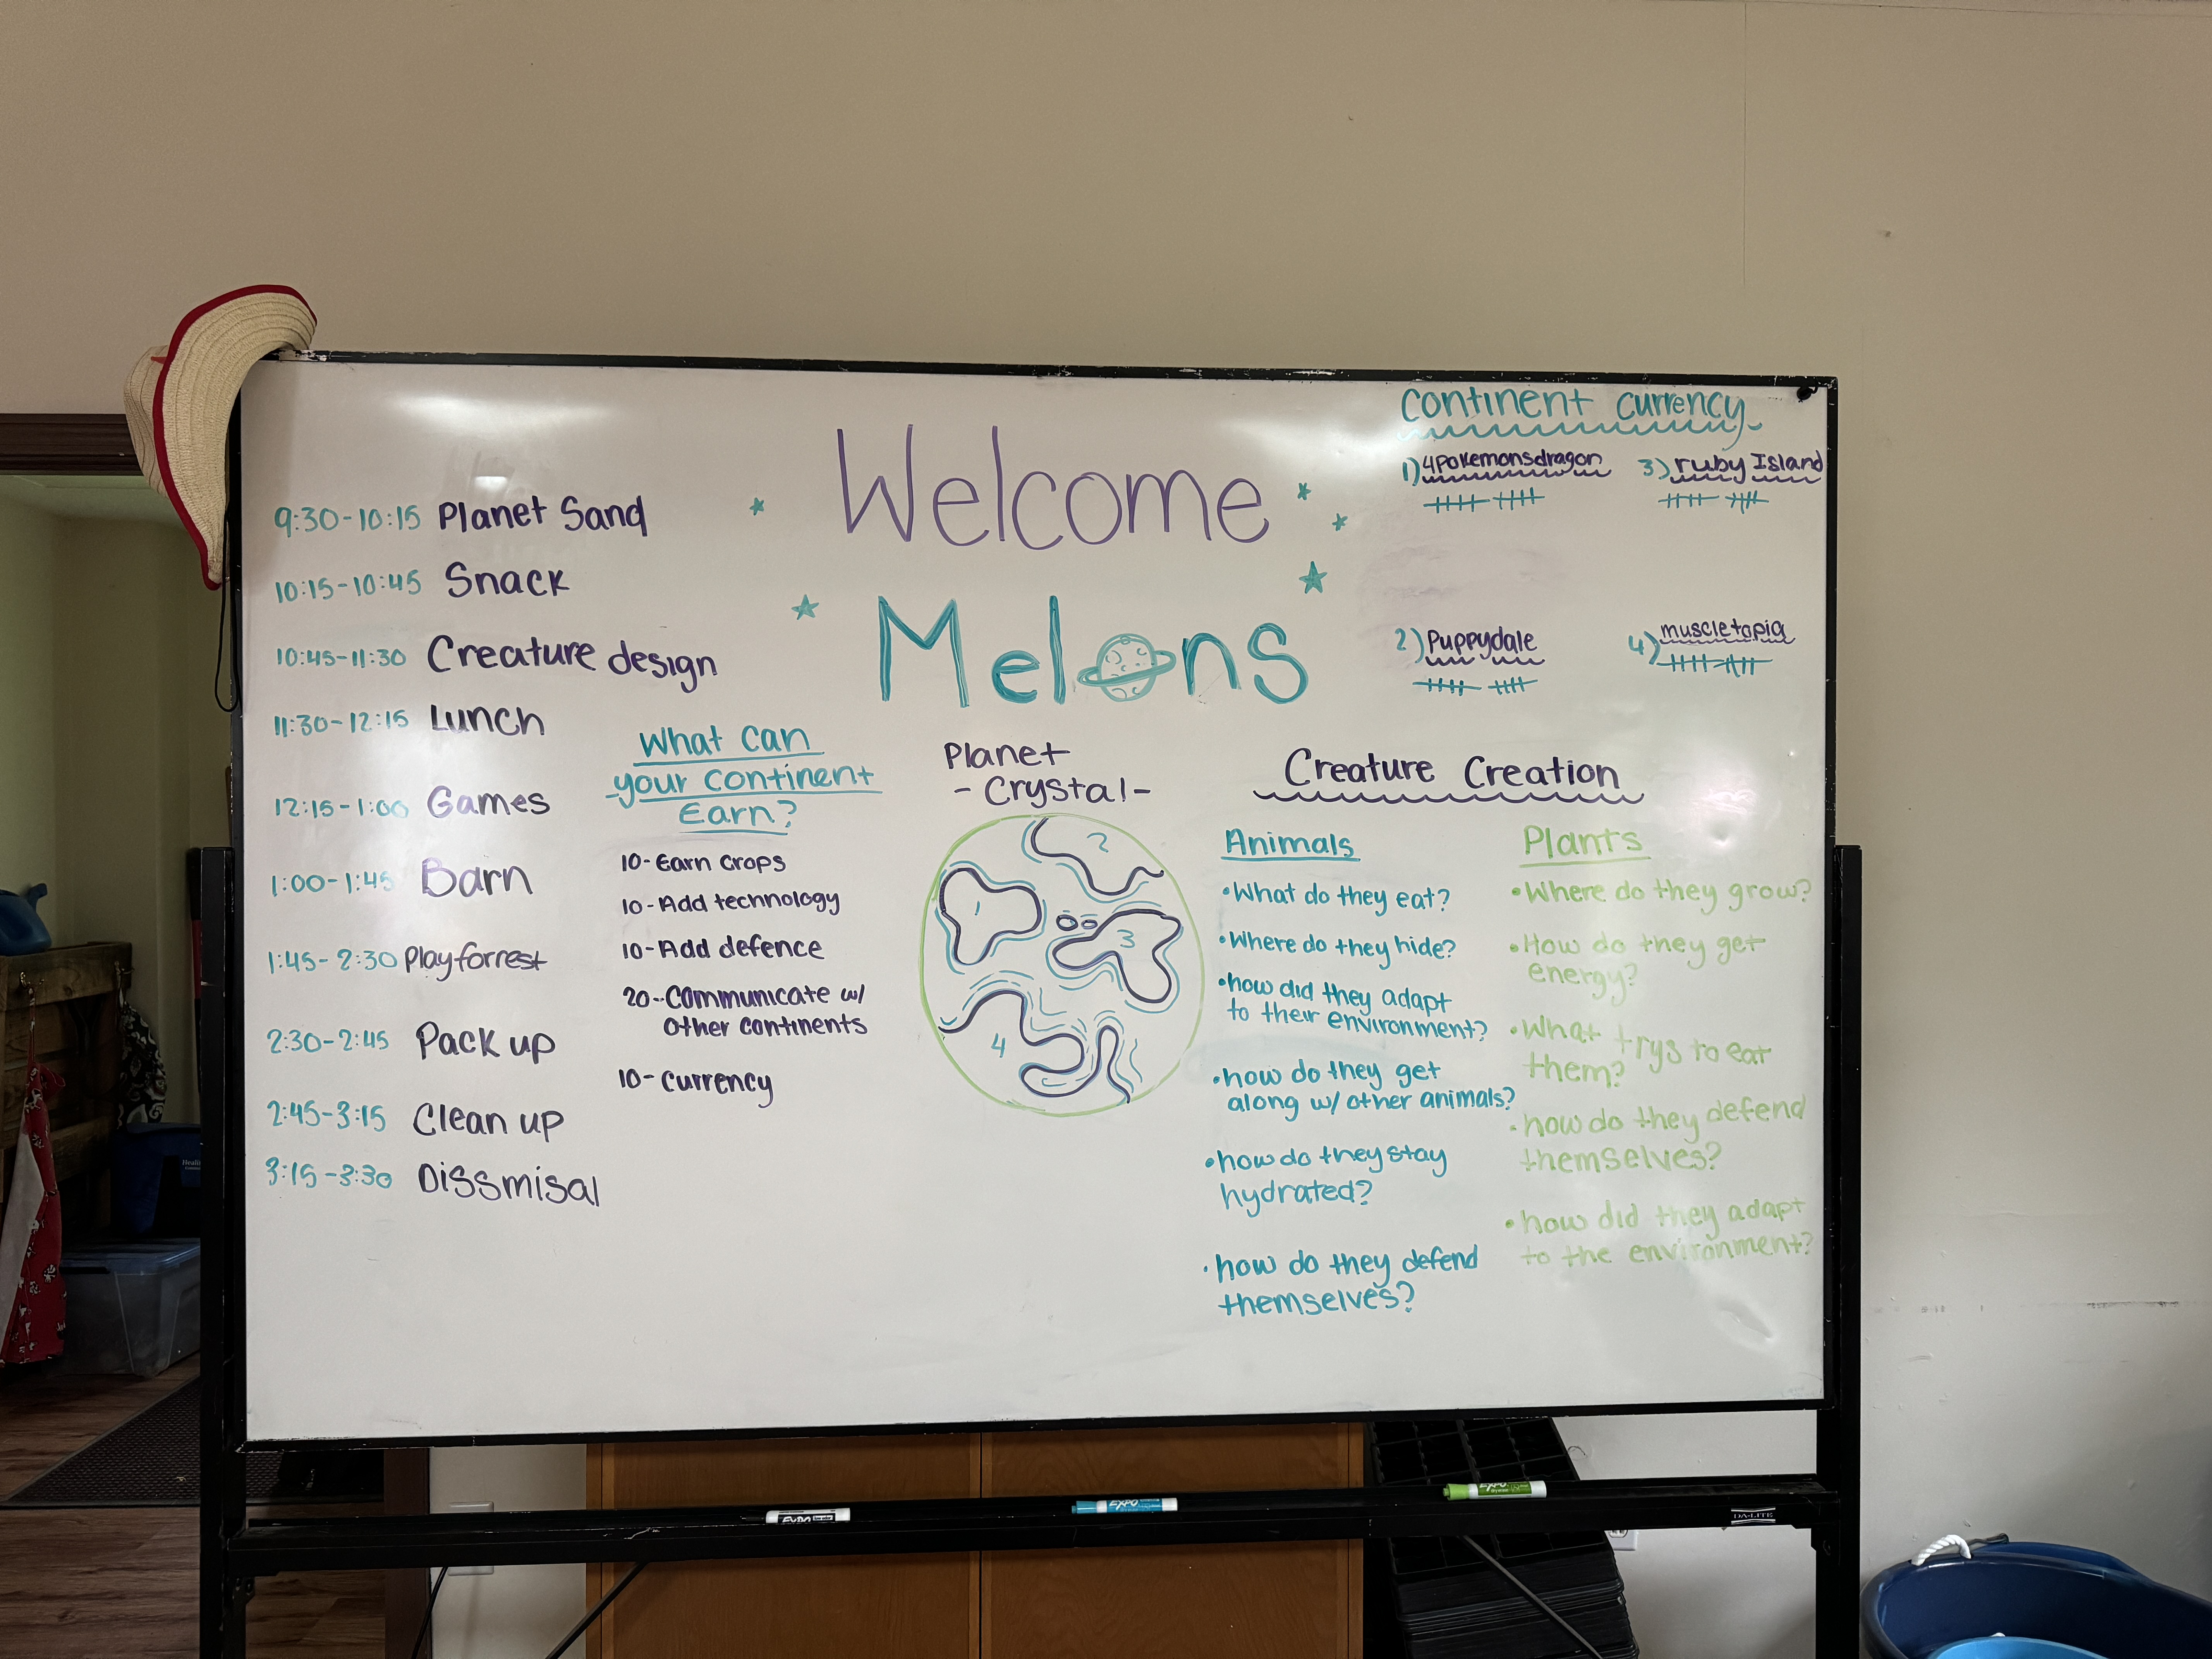 Continent Currency
1) 4pokemonsdragon
3) ruby Island
2) Puppydale
4) muscletopia
Welcome
Melons
9:30-10:15 Planet Sand
10:15-10:45 Snack
10:45-11:30 Creature design
11:30-12:15 Lunch
12:15-1:00 Games
1:00-1:45 Barn
1:45-2:30 Playforrest
2:30-2:45 Pack up
2:45-3:15 Clean up
3:15-3:30 Dissmisal
What can
your continent
Earn?
10-Earn crops
10-Add technology
10-Add defence
20-Communicate w/
other continents
10-Currency
Planet
-Crystal-
1
2
3
4
Creature Creation
Animals
•What do they eat?
•Where do they hide?
•how did they adapt
to their environment?
•how do they get
along w/ other animals?
•how do they stay
hydrated?
•how do they defend
themselves?
Plants
•Where do they grow?
•How do they get
energy?
•What trys to eat
them?
•how do they defend
themselves?
•how did they adapt
to the environment?
EXPO
EXPO
EXPO
DA-LITE